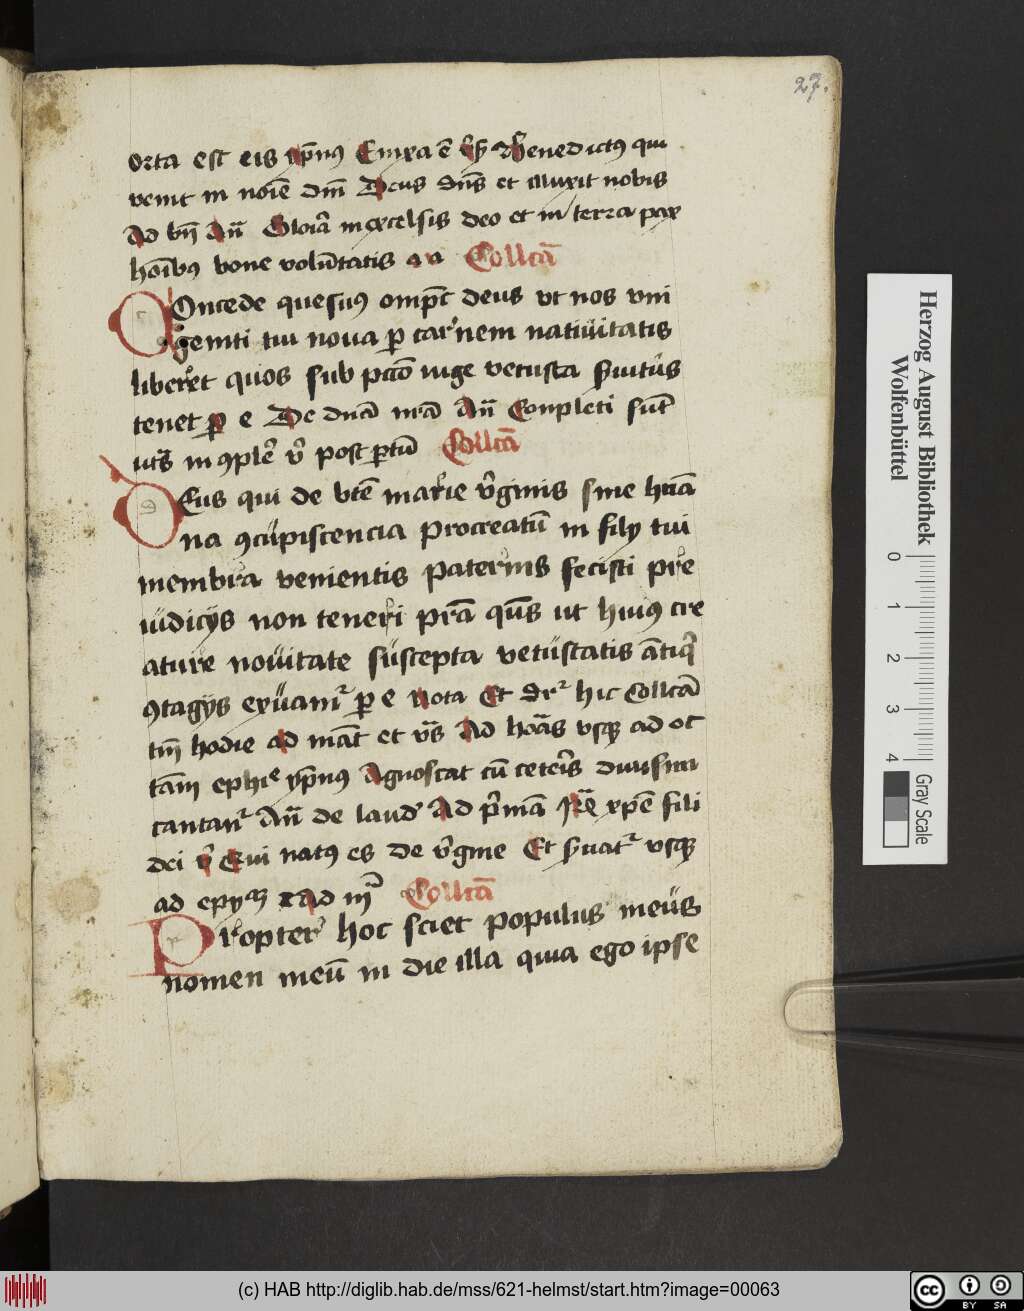 27.
orta est eis yp̄nꝰ Enixa ē v̉ꝰ Benedictꝰ qui
venit in noīe dn̄i Deus dn̄s et illuxit nobis
Ad bn̄ An̄ Gloīa in excelsis deo et in terra pax
hoībꝰ bone volūtatis a a Collcā
Oncede quesuꝰ omp̄c deus vt nos vni
geniti tui noua ꝑ carnem natiuitatis
liberet quos sub pctō iuge vetusta ẜuitus
tenet ꝑ e De dnā nrā An̄ Conpleti sūt
ut s in ꝯplē v̉ post ꝑtū Collcā
Eus qui de vtē marie v̉ginis sine hūa
na ꝯcupiscencia procreatū in fily tui
membra venientis paternis fecisti pre
iudicijs non teneri prā qs ut huiꝰ cre
ature nouitate suscepta vetustatis ātiq̉
ꝯtagijs exuamr̉ ꝑ e Nota Et dr̉ hic Collcā
tm̄ hodie ad māt et vs̄ Ad horās vsqꝫ ad oc
tam ephie yp̄nꝰ Agnoscat cū ceteris diuisim
cantantr̉ An̄ de laud Ad prīmā Rē xpē fili
dei v̉ Qui natꝰ es de v̉gine Et ẜuatr̉ vsqꝫ
ad epy Ad iij Collcā
Propter hoc sciet populus meus
nomen meū in die illa quia ego ipse
Herzog August Bibliothek
Wolfenbüttel
0 1 2 3 4
Gray Scale
(c) HAB http://diglib.hab.de/mss/621-helmst/start.htm?image=00063
cc BY SA